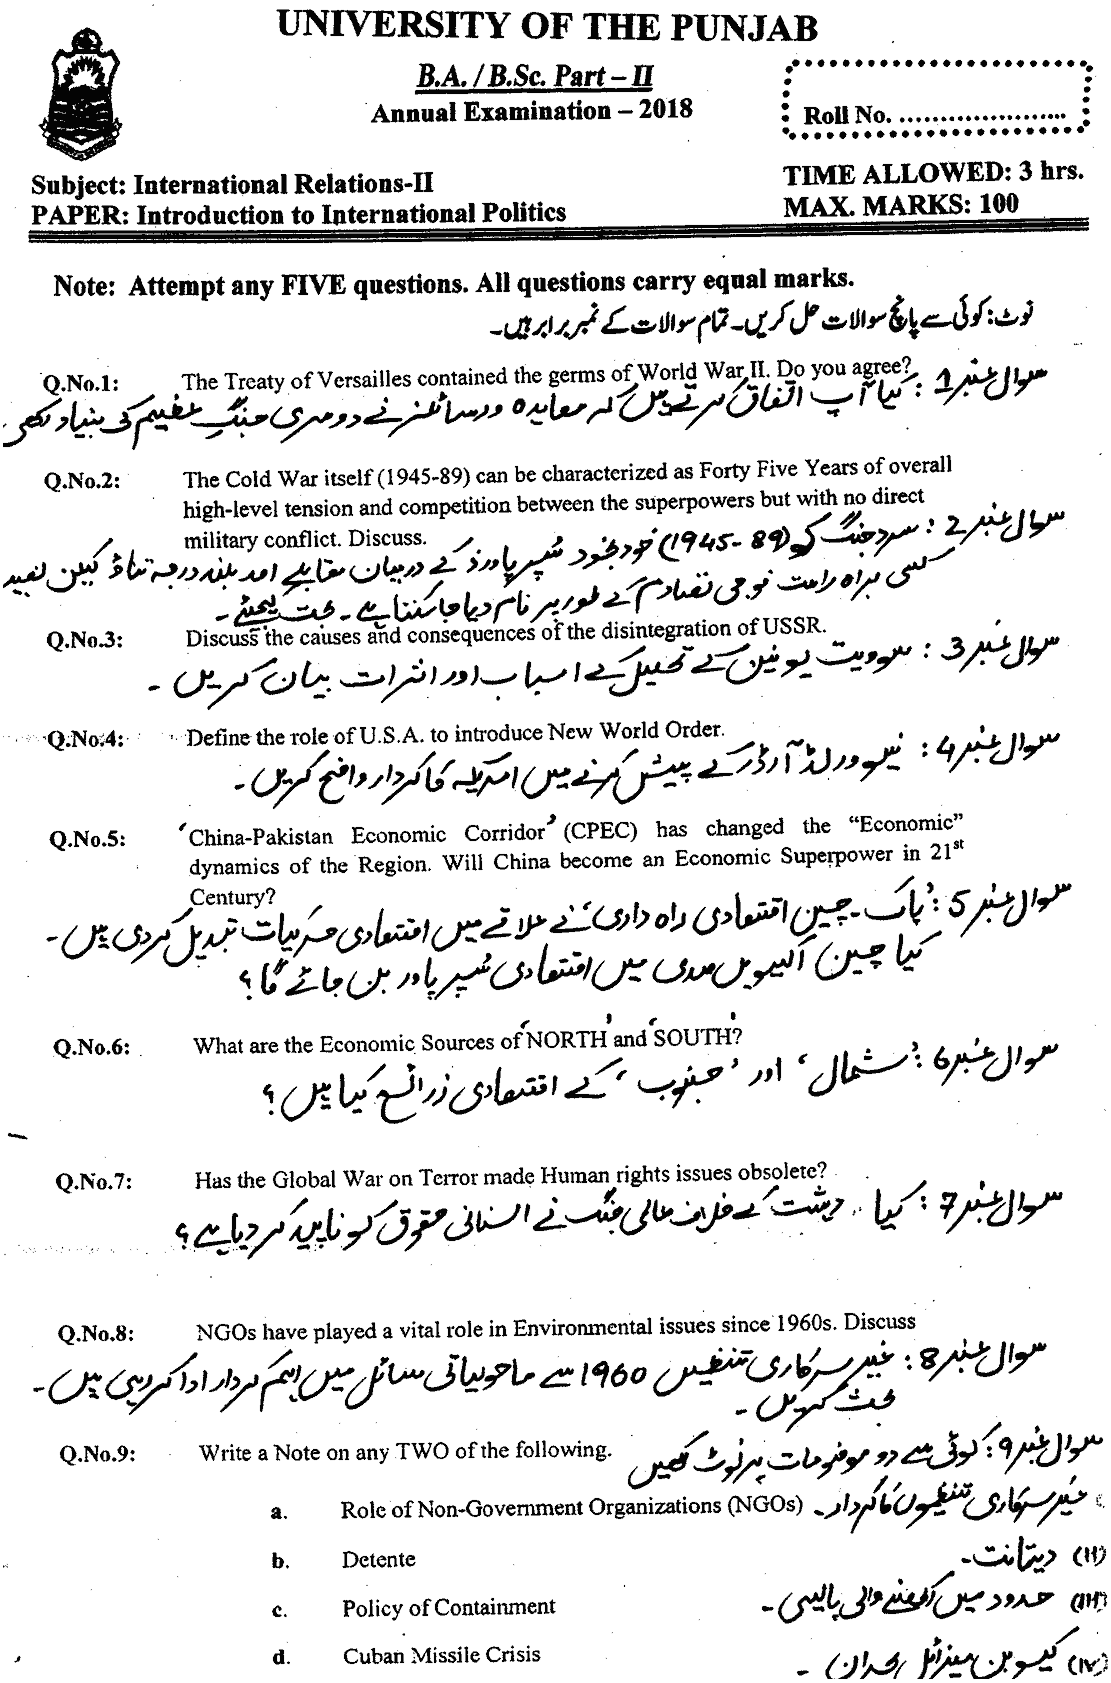 UNIVERSITY OF THE PUNJAB
B.A. / B.Sc. Part – II
Annual Examination – 2018
Roll No. .....................
Subject: International Relations-II
PAPER: Introduction to International Politics
TIME ALLOWED: 3 hrs.
MAX. MARKS: 100
Note: Attempt any FIVE questions. All questions carry equal marks.
نوٹ: کوئی سے پانچ سوالات حل کریں۔ تمام سوالات کے نمبر برابر ہیں۔
Q.No.1: The Treaty of Versailles contained the germs of World War II. Do you agree?
سوال نمبر 1: کیا آپ اتفاق کرتے ہیں کہ معاہدہ ورسائلز نے دوسری جنگِ عظیم کی بنیاد رکھی
Q.No.2: The Cold War itself (1945-89) can be characterized as Forty Five Years of overall
high-level tension and competition between the superpowers but with no direct
military conflict. Discuss.
سوال نمبر 2: سرد جنگ کو (1945-89) خود بخود سُپر پاورز کے درمیان مقابلے اور بلند درجہ تناؤ لیکن بغیر
کسی براہ راست فوجی تصادم کے طور پر نام دیا جا سکتا ہے۔ بحث کیجئے۔
Q.No.3: Discuss the causes and consequences of the disintegration of USSR.
سوال نمبر 3: سوویت یونین کے تحلیل کے اسباب اور اثرات بیان کریں۔
Q.No.4: Define the role of U.S.A. to introduce New World Order.
سوال نمبر 4: نیو ورلڈ آرڈر کے پیش کرنے میں امریکہ کا کردار واضح کریں۔
Q.No.5: 'China-Pakistan Economic Corridor' (CPEC) has changed the “Economic”
dynamics of the Region. Will China become an Economic Superpower in 21st
Century?
سوال نمبر 5: 'پاک۔چین اقتصادی راہ داری' نے علاقے میں اقتصادی حرکیات تبدیل کر دی ہیں۔
کیا چین اکیسویں صدی میں اقتصادی سُپر پاور بن جائے گا؟
Q.No.6: What are the Economic Sources of 'NORTH' and 'SOUTH'?
سوال نمبر 6: 'شمال' اور 'جنوب' کے اقتصادی ذرائع کیا ہیں؟
Q.No.7: Has the Global War on Terror made Human rights issues obsolete?
سوال نمبر 7: کیا دہشت کے خلاف عالمی جنگ نے انسانی حقوق کو ناپید کر دیا ہے؟
Q.No.8: NGOs have played a vital role in Environmental issues since 1960s. Discuss
سوال نمبر 8: غیر سرکاری تنظیمیں 1960 سے ماحولیاتی مسائل میں اہم کردار ادا کر رہی ہیں۔
بحث کریں۔
Q.No.9: Write a Note on any TWO of the following.
سوال نمبر 9: کوئی سے دو موضوعات پر نوٹ لکھیں
a. Role of Non-Government Organizations (NGOs)
غیر سرکاری تنظیموں کا کردار۔
b. Detente
(II) دیتانت۔
c. Policy of Containment
(III) حدود میں رکھنے والی پالیسی۔
d. Cuban Missile Crisis
(IV) کیوبن میزائل بحران۔